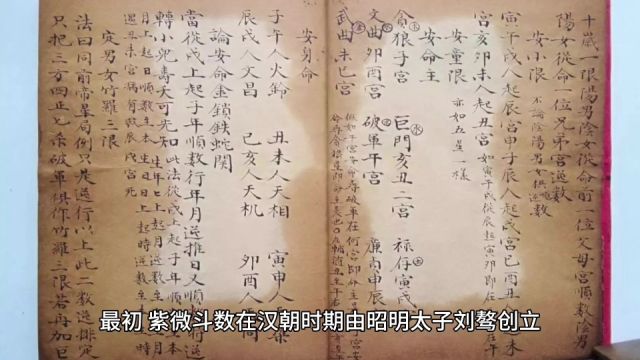 十歲一限陽男陰女從命前一位父母宮順數陰男
陽女從命一位兄弟宮逆數
安小限 不論陰陽男女俱逆數
寅午戌人起辰宮申子辰人起戌宮巳酉丑人
宮亥卯未人起丑宮 如寅午戌從辰起寅卯即在
安童限 亦如五星一樣
安命主
貪狼子宮 巨門亥丑二宮 祿存寅戌
文曲卯酉宮 破軍午宮 廉貞申辰
武曲未巳宮
安身命
子午人火鈴 丑未人天相 寅申人天
辰戌人文昌 巳亥人天机 卯酉人天同
論安命金鎖鉄蛇関
當從戌上起子年順數行年月逆推日又順
轉小兒壽夭可先知
定男女竹羅三限
法曰同前帝星局例只是逆行以上此二數逆排定
只把三方四正七杀破軍俱作竹羅三限若再加巨
最初 紫微斗数在汉朝时期由昭明太子刘骜创立